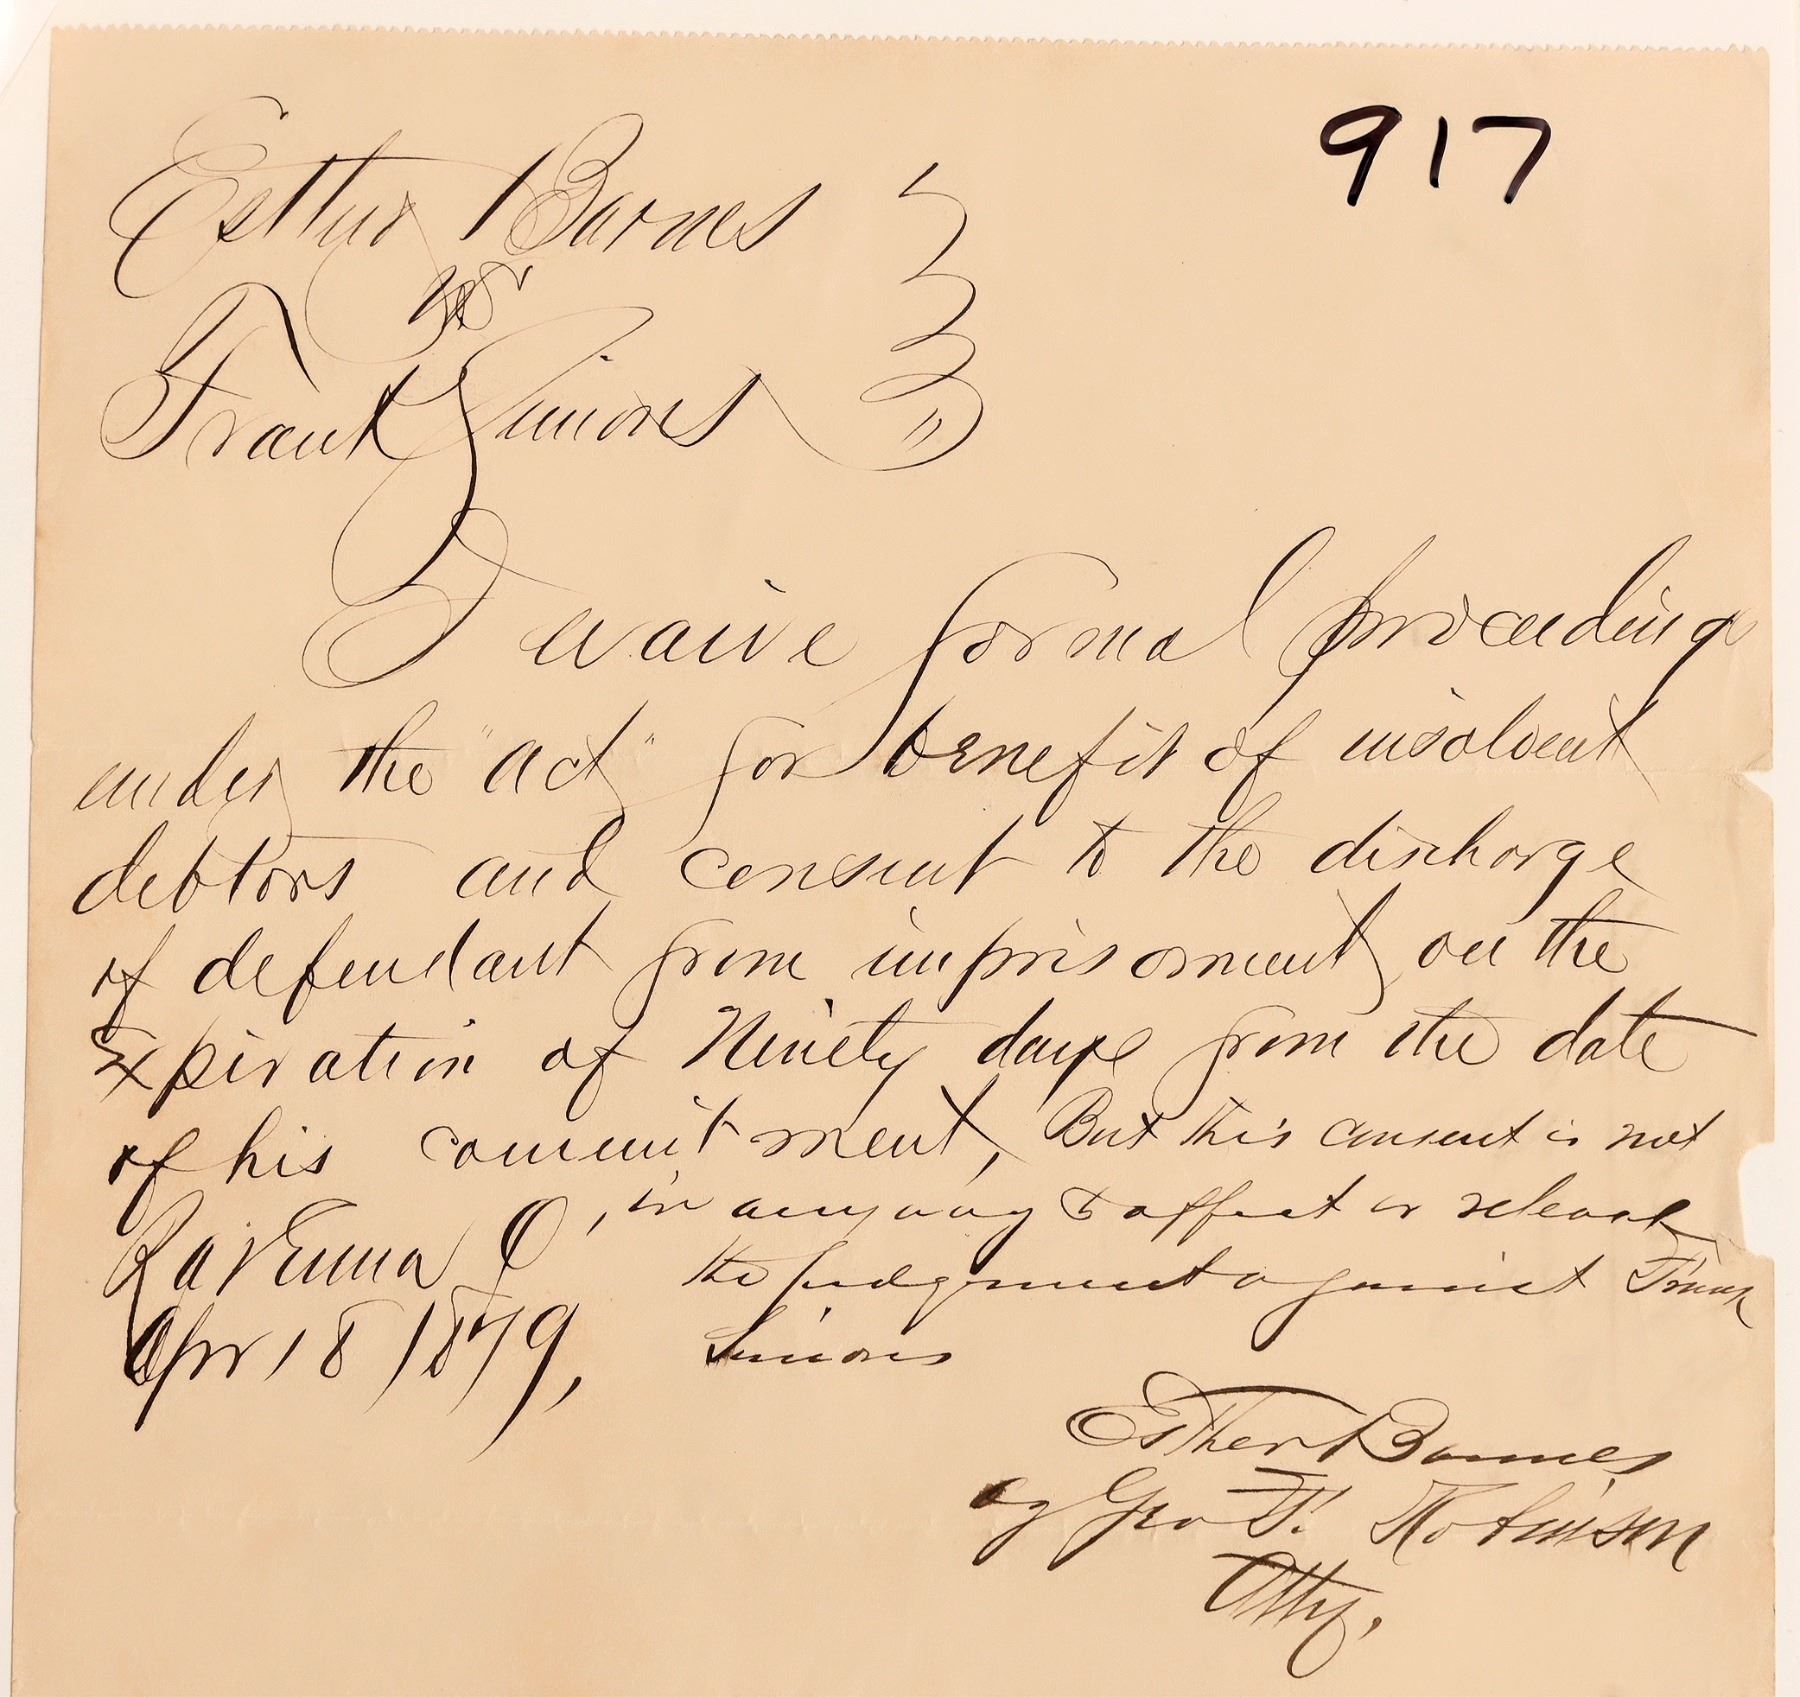 917
Esther Barnes
vs
Frank Simons
I waive formal proceeding
under the "act" for benefit of insolvent
debtors and consent to the discharge
of defendant from imprisonment on the
Expiration of Ninety days from the date
of his commitment, But this consent is not
in anyway to affect or release
the judgment against Frank
Simons
Ravenna O,
Apr 18 1879,
Esther Barnes
by Geo F. Robinson
Atty.